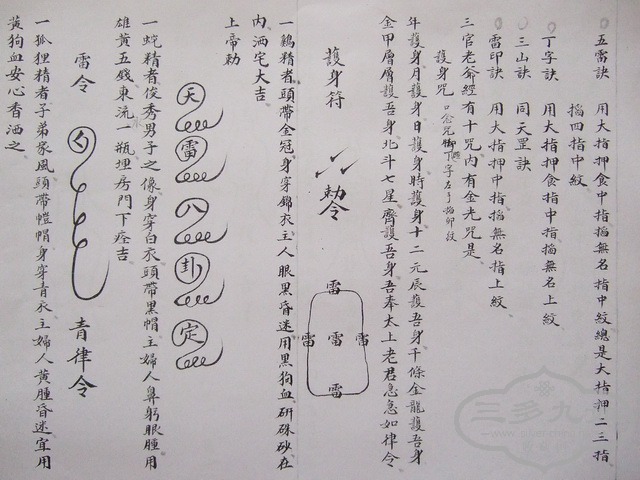 五雷訣　用大指押食中指掐無名指中紋總是大指押二三指
掐四指中紋
丁字訣　用大指押食指中指掐無名上紋
三山訣　同天罡訣
雷印訣　用大指押中指掐無名指上紋
三官老爺經有十咒內有金光咒是
護身咒 口念咒 下字左手掐卯紋
年護身月護身日護身時護身十二元辰護吾身千條金龍護吾身
金甲層層護吾身北斗七星齊護吾身吾奉太上老君急急如律令
護身符　勅令　雷 雷 雷 雷 雷
一鷄精者頭帶金冠身穿錦衣主人眼黑昏迷用黑狗血研硃砂在
內洒宅大吉
上帝勅
天 雷 八 卦 定
一蛇精者俊秀男子之像身穿白衣頭帶黑帽主婦人鼻 眼腫用
雄黃五錢東流一瓶埋房門下 吉
雷令　青律令
一狐狸精者子弟家風頭帶 帽身穿青衣主婦人黃腫昏迷宜用
黃狗血安心香洒之
三多九